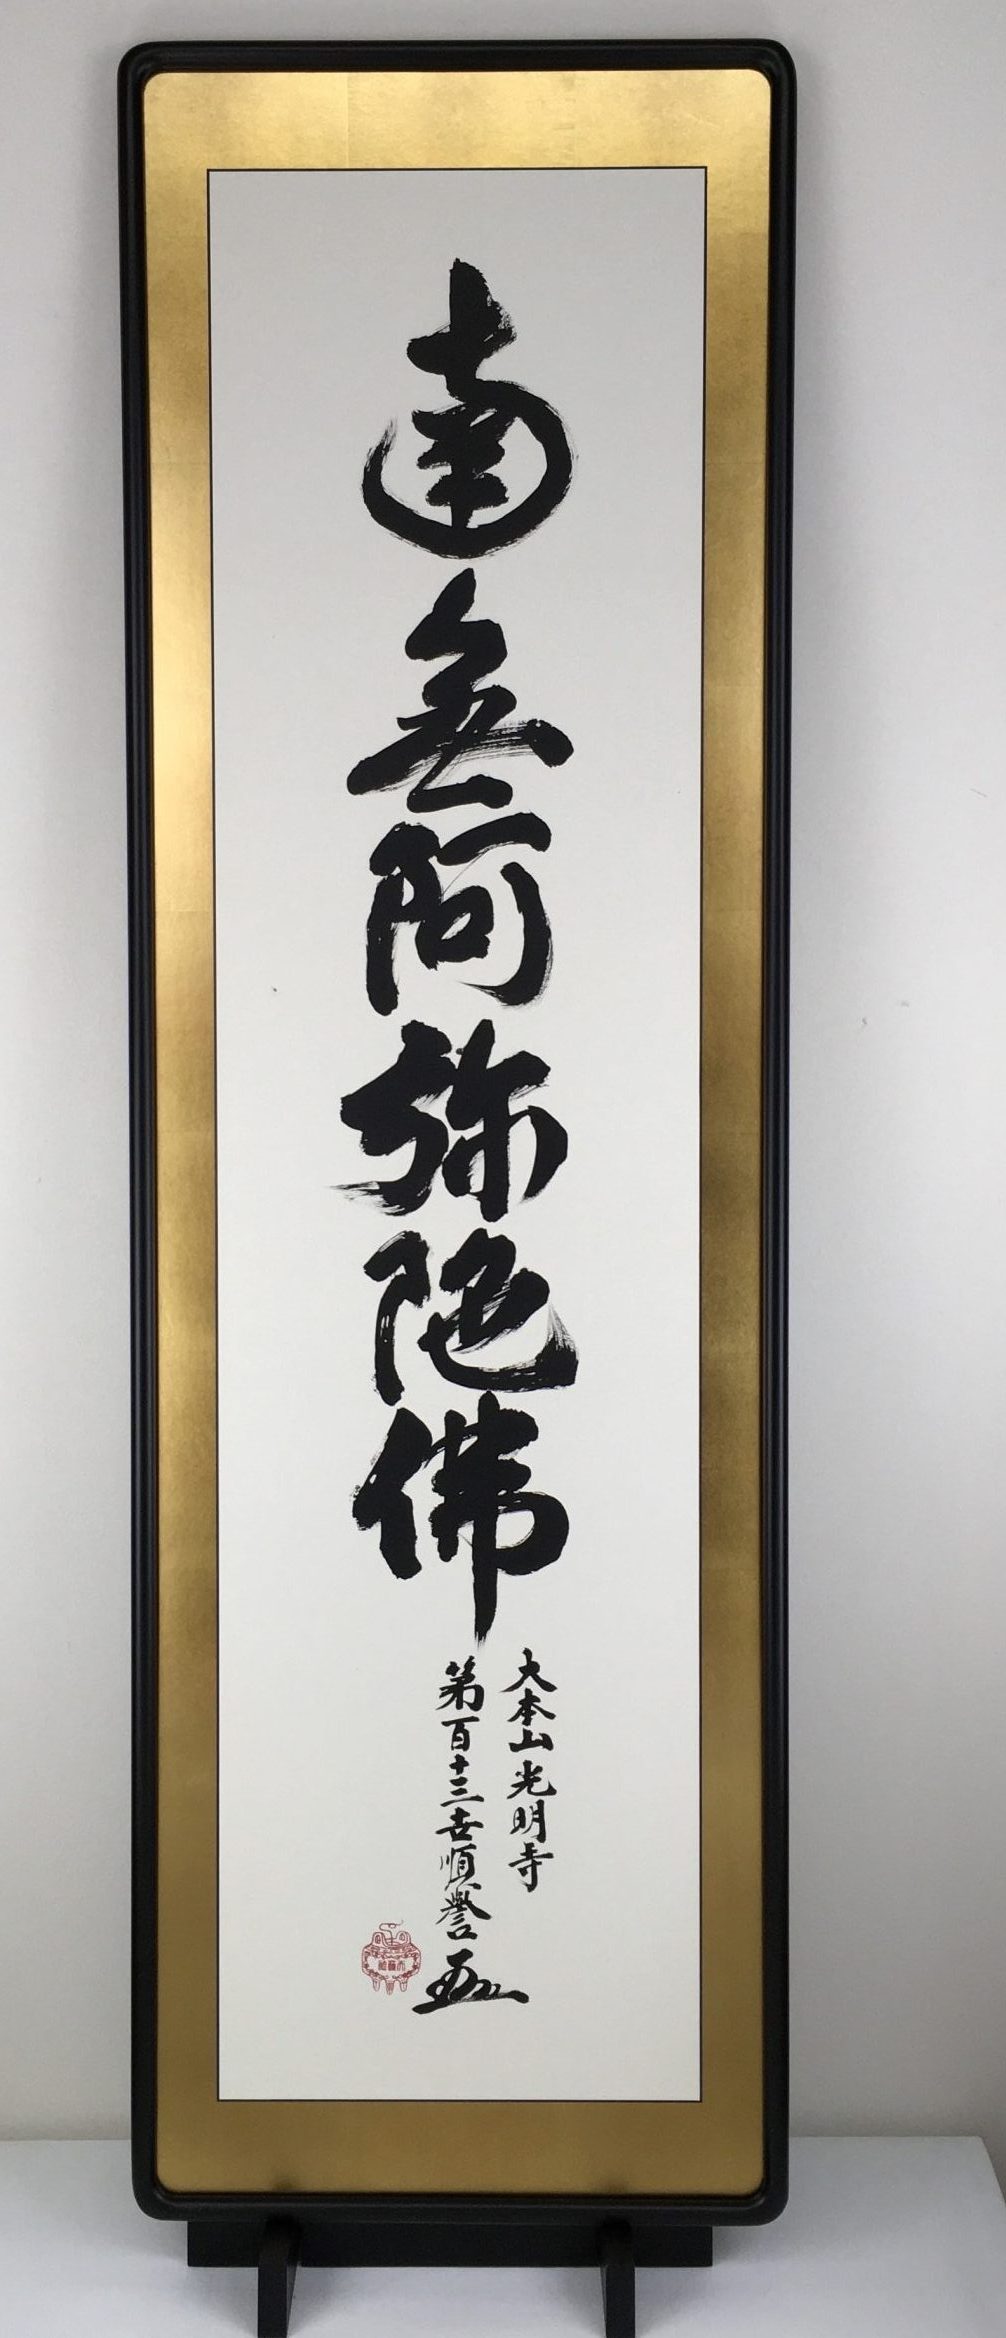 南無阿弥陀佛
大本山光明寺
第百十三世順譽